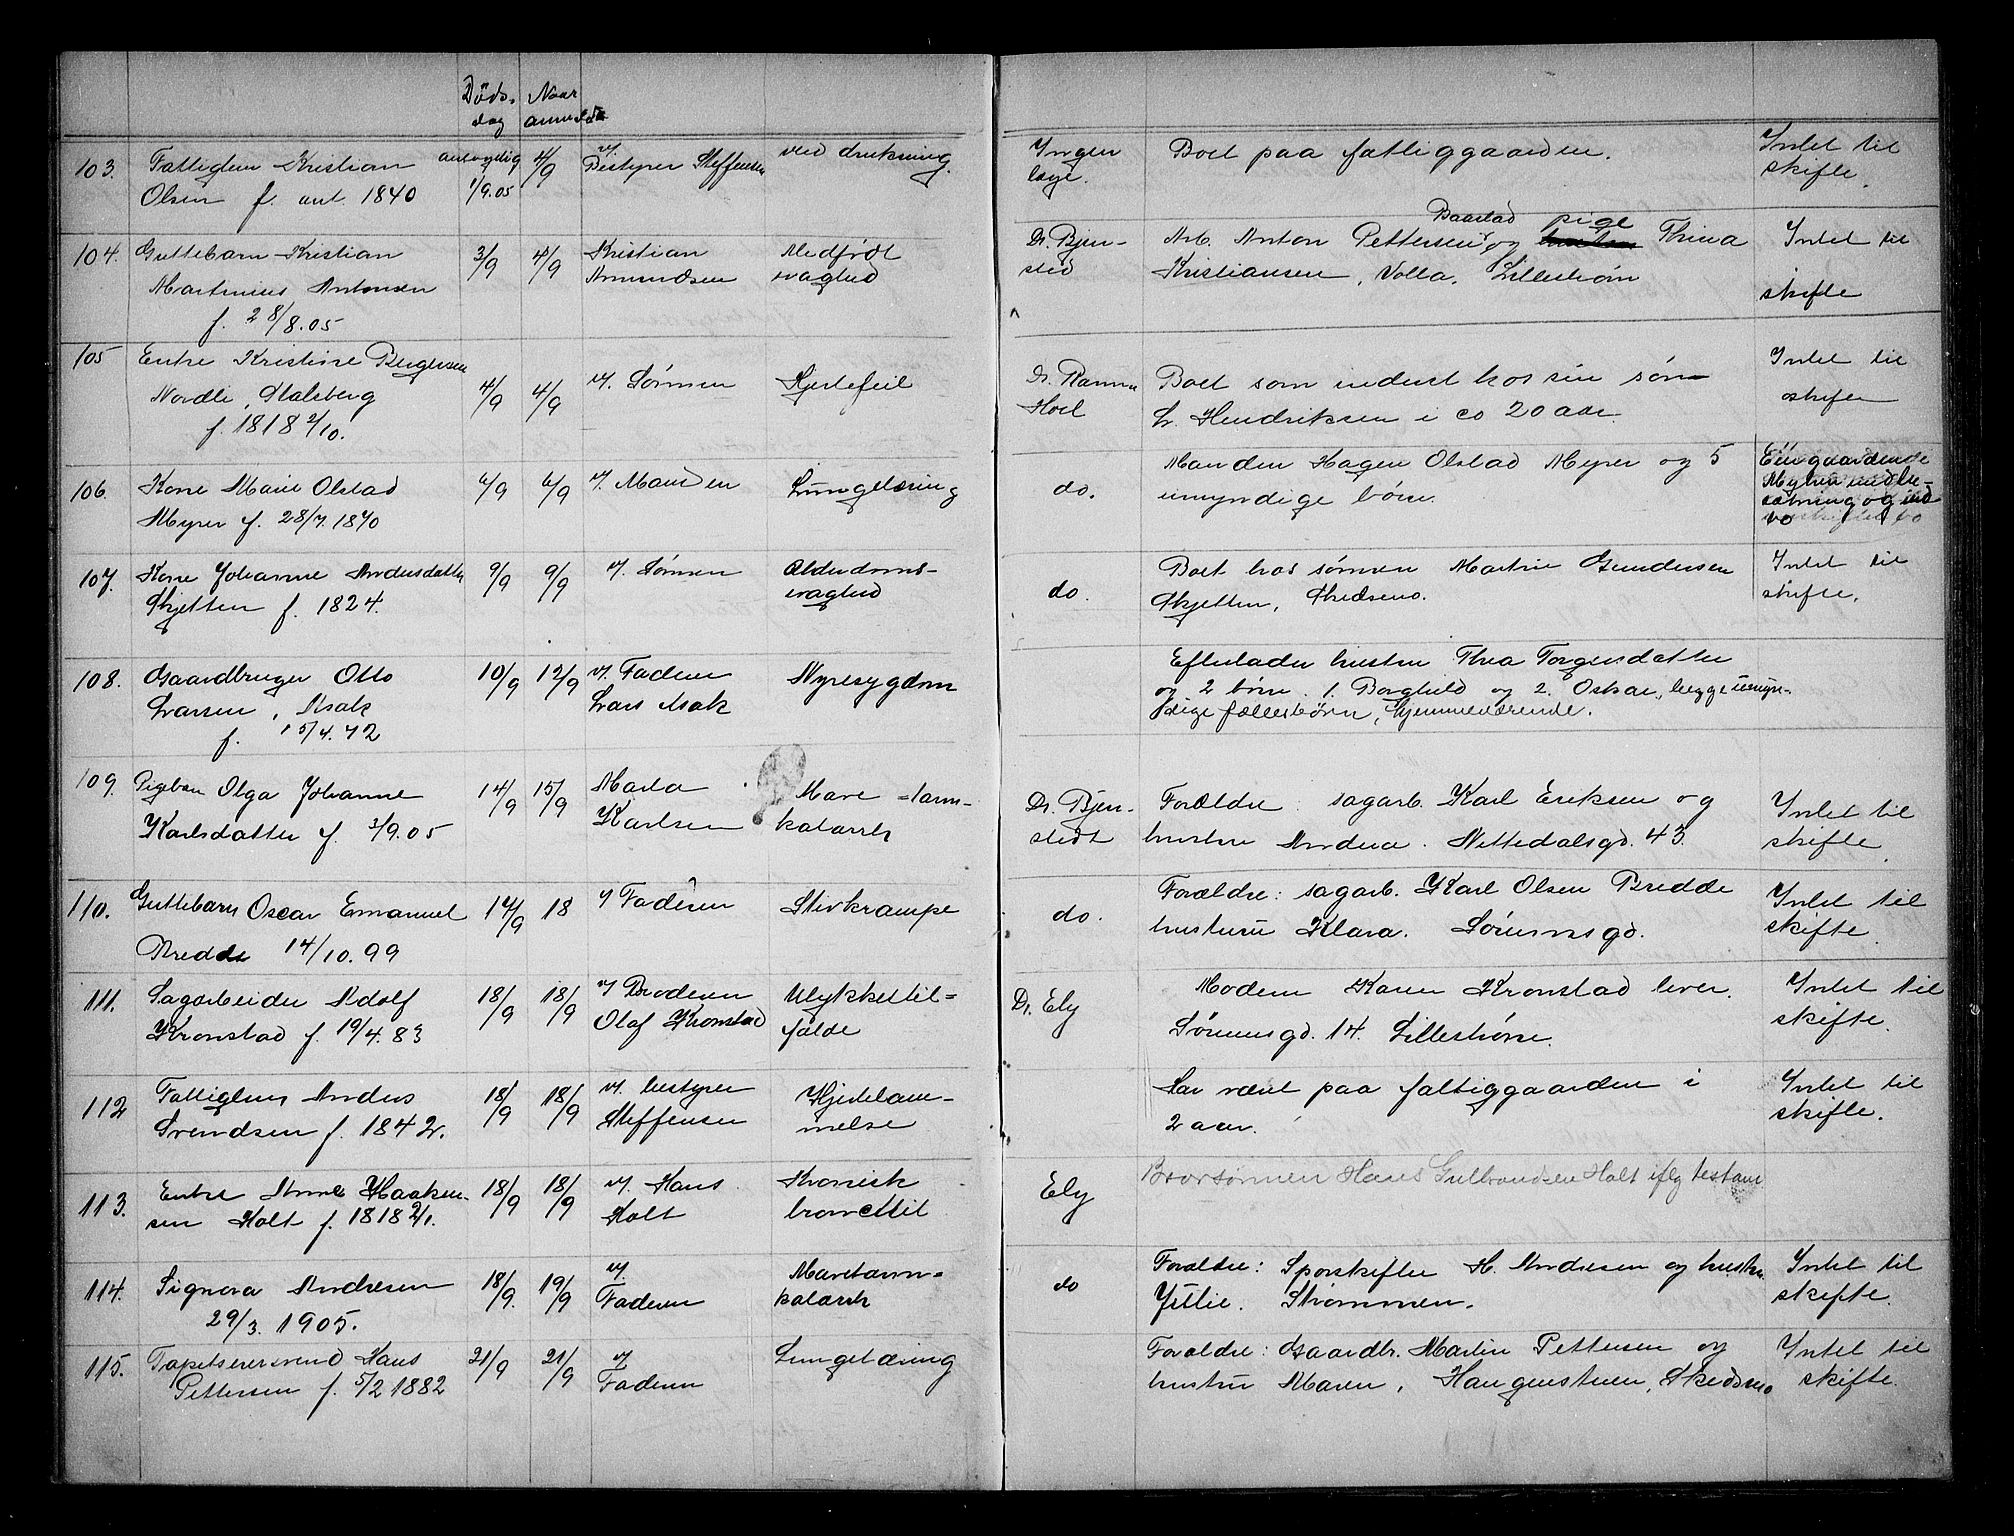 Døds- Naar
dag anmeldt
103. Fattiglem Kristian antagelig 4/9 v/ Bestyrer Steffensen ved drukning. Ingen Boet paa fattiggaarden. Intet til
Olsen f. ant. 1840 1/9.05 læge. skifte.
104. Guttebarn Kristian 3/9 4/9 Kristian Medfødt Dr. Bjen- Arb. Anton Pettersen Baastad og pige Thina Intet til
Martinius Antonsen Amundsen svaghed sted Kristiansen, Volla, Lillestrøm skifte
f. 28/8.05
105 Enke Kristine Birgersen Intet til
Nordli, Stalsberg 4/9 4/9 v/. Sønnen Hjertefeil Dr. Ramm Boet som inderst hos sin søn skifte
f. 1818 2/10. Hoel L. Hendriksen i ca 20 aar.
106. Kone Marie Olstad 6/9 6/9 v/. Manden Lungetæring do. Manden Hagen Olstad Myrer og 5
Myrer f. 28/7.1870 umyndige børn.
107. Kone Johanne Andersdatter 9/9 9/9 v/. Sønnen Alderdoms- do. Boet hos sønnen Martin Gundersen Intet til
Skjetten f. 1824. svaghed Skjetten, Skedsmo. skifte.
108. Gaardbruger Otto 10/9 12/9 v/. Faderen Nyresygdom Efterlader hustru Thea Torgersdatter
Larsen, Asak Lars Asak og 2 børn. 1. Borghild og 2. Oskar, begge umyn-
f. 15/4.72 dige fællesbørn, hjemmeværende.
109. Pigebarn Olga Johanne 14/9 15/9 Marta Mave-tarm- Dr. Bjen- Forældre: sagarb. Karl Eriksen og Intet til
Karlsdatter f. 3/9.05 Karlsen katarrh stedt hustru Andrea. Nittedalsgd. 43. skifte.
110. Guttebarn Oscar Emanuel 14/9 18 v/ Faderen Stivkrampe do. Forældre: sagarb. Karl Olsen Bredde Intet til
Bredde 14/10.99 hustru Klara. Sørumsgd. skifte.
111. Sagarbeider Adolf 18/9 18/9 v/ Broderen Ulykkestil- Dr. Ely Modern Karen Kronstad lever. Intet til
Kronstad f. 19/4.83 Olaf Kronstad fælde Sørumsgd. 14. Lillestrøm. skifte.
112 Fattiglem Anders 18/9 18/9 v/. bestyrer Hjertelam- Har været paa fattiggaarden i Intet til
Svendsen f. 1842. Steffensen melse 2 aar. skifte.
113. Enke Anne Haaken- 18/9 18/9 v/. Hans Kronisk Ely Brorsønnen Hans Gulbrandsen Holt iflg testam
sen Holt f. 1818 2/1. Holt bronchit
114. Signora Andresen 18/9. 19/9 v/. Mavetarm- do Forældre: Sporskifter H. Andresen og hustru Intet til
29/3. 1905. Faderen katarrh Jullie. Strømmen. skifte.
115. Tapetserersvend Hans 21/9 21/9 v/ Lungetæring Forældre: Gaardbr. Martin Pettersen og Intet til
Pettersen f. 5/2 1882 Faderen hustru Maren, Haugenstuen, Skedsmo skifte.